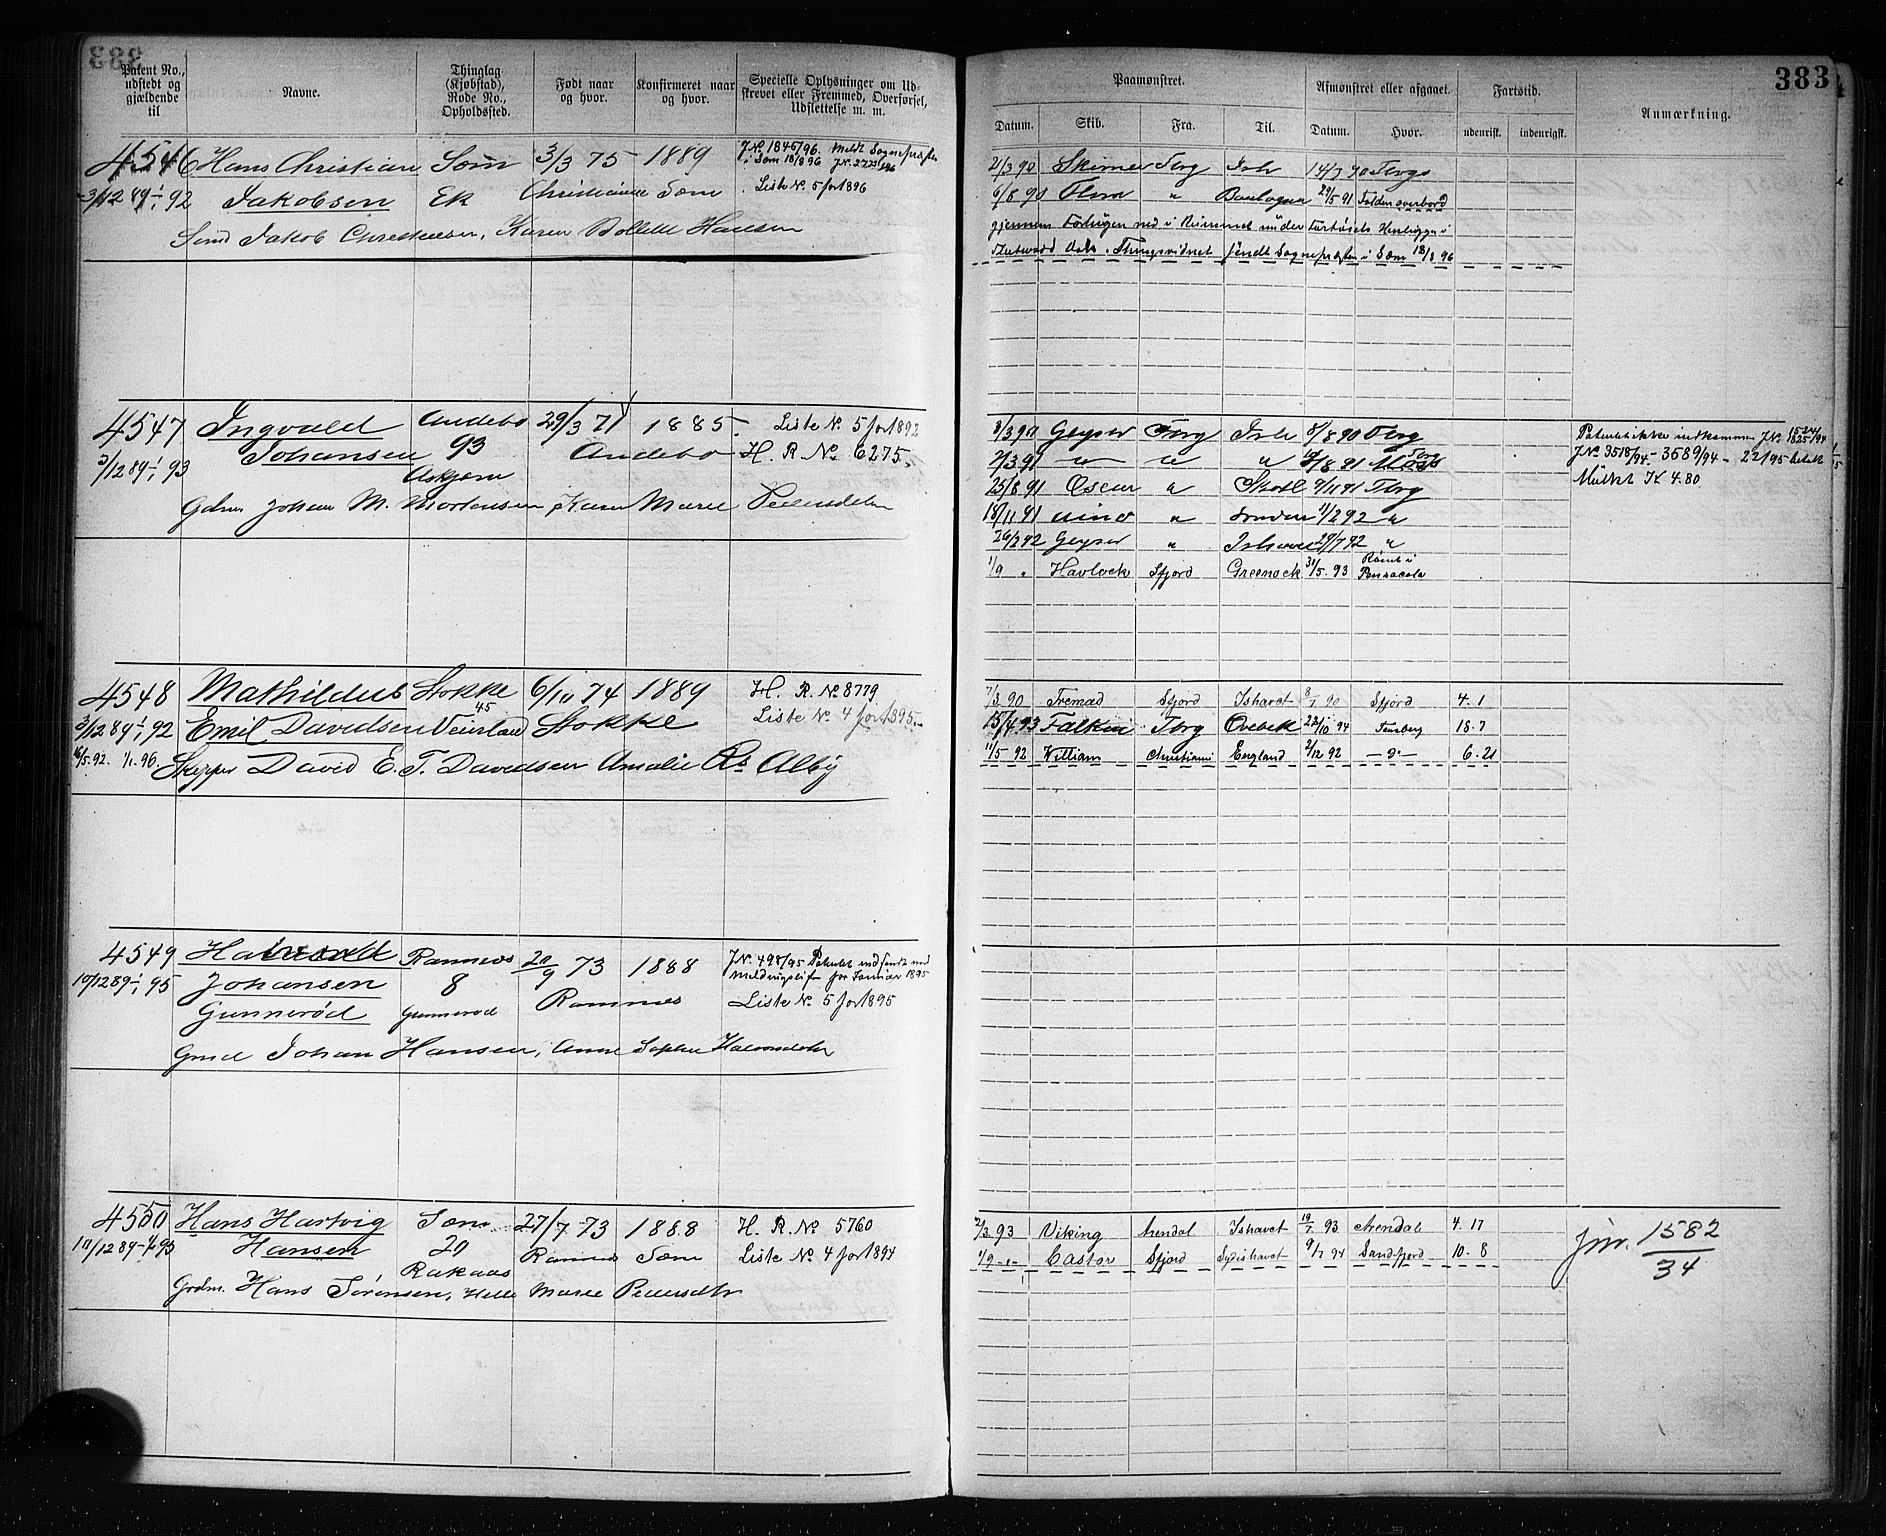 383
Patent No., udstedt og gjældende til
Navne.
Thinglag (Kjøbstad), Rode No., Opholdssted.
Født naar og hvor.
Konfirmeret naar og hvor.
Specielle Oplysninger om Udskrevet eller Fremmed, Overførsel, Udslettelse m. m.
4546 Hans Christian Sæm 3/3 75 1889 J.No. 1845/96. Meldt Sognepræsten
i Sæm 18/8 96
3/12 89 1/1 92 Jakobsen Ek Christiane Sæm Liste No. 5 for 1896
Smd Jakob Christensen, Karen Bollette Hansen
4547 Ingvald Andebo 29/3 71 1885. Liste No. 5 for 1892
Johansen 93 Andebo H. R. No. 6275.
3/12 89 1/1 93 Askjem
Gdm. Johan M. Mortensen, Karen Marie Pedersdatter
4548 Mathildus Stokke 6/10 74 1889 H. R. No. 8779
45
3/12 89 1/1 92 Emil Davidsen Veirstad Stokke Liste No. 4 for 1895.
16/5. 92. 1/1. 96. Skipper David E. T. Davidsen Amalie Alby
4549 Halvard Ramnes 20/9 73 1888 J.No. 498/95 Patentet indsendt med
meldingslist for Januar 1895
10/12 89 1/1 95 Johansen 8 Ramnes Liste No. 5 for 1895
Gunnerød Gunnerød
Gmd Johan Hansen, Anne Sophie Halvorsdatter
4550 Hans Hartvig Sæm 27/7 73 1888 H. R. No. 5760
10/12 89 1/1 95 Hansen 20 Ramnes Sæm Liste No. 4 for 1894
Rakaas
Grdm. Hans Sørensen, Helle Maree Pedersdtr
383
Paamønstret.
Afmønstret eller afgaaet.
Fartstid.
Anmærkning.
Datum. Skib. Fra. Til. Datum. Hvor. udenrigst. indenrigst.
21/3 90 Skirner Tbrg Ish 14/7 90 Tbrg
6/8 90 Flora " Boulogne 29/5 91 Falden overbord
gjennem i Rummet under Fartøiets Henligge i
Thingsvidnet sendt Sognepræsten i Sæm 18/8 96
8/3 90 Geyser Tbrg Ish 8/8 90 Tbrg
25/8 91 Oscar " Skotl 9/11 91 Tbrg
18/11 91 " London 11/2 92 "
26/2 92 Geyser " Ishavet 29/7 92 "
1/9 " Havlock Sfjord Greenock 31/5. 93 Rømt i Pensacola
Patentet ikke indkommen J.No. 1524/94 1825/94
J.No. 3518/94 - 3589/94 - 22/95 betalt
Mulkt K 4.80
7/3 90 Fremad Sfjord Ishavet 8/7 90 Sfjord 4. 1
15/4 93 Falken Tbrg Ovebek 22/10 94 Tønsberg 18. 7
11/5 92 William Christiania England 2/12 92 —"— 6. 21
2/3 93 Viking Arendal Ishavet 19/7 93 Arendal 4. 17
1/9 -"- Castor Sfjord Sydishavet 9/7 94 Sandefjord 10. 8
Jnr. 1582/34